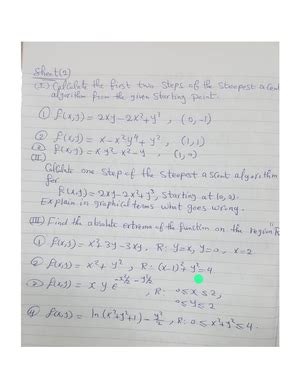 Sheet(2)
(I) Calculate the first two steps of the steepest ascent
algorithm from the given starting point.
① f(x,y) = 2xy-2x²+y³ , (0,-1)
② f(x,y) = x-x²y⁴+y² , (1,1)
③ f(x,y) = xy²-x²-y , (1,0)
(II)
Calculate one step of the steepest ascent algorithm
for
f(x,y) = 2xy-2x²+y³, starting at (0,0).
Explain in graphical terms what goes wrong.
(III) Find the absolute extrema of the function on the region "R"
① f(x,y) = x²+3y-3xy. R: y=x, y=0, x=2
② f(x,y) = x²+y² , R: (x-1)²+y²=4
③ f(x,y) = x y e^{-x²/2 - y²/2} , R: 0≤x≤2,
0≤y≤2
④ f(x,y) = ln(x²+y²+1) - y²/2 , R: 0≤x²+y²≤4.